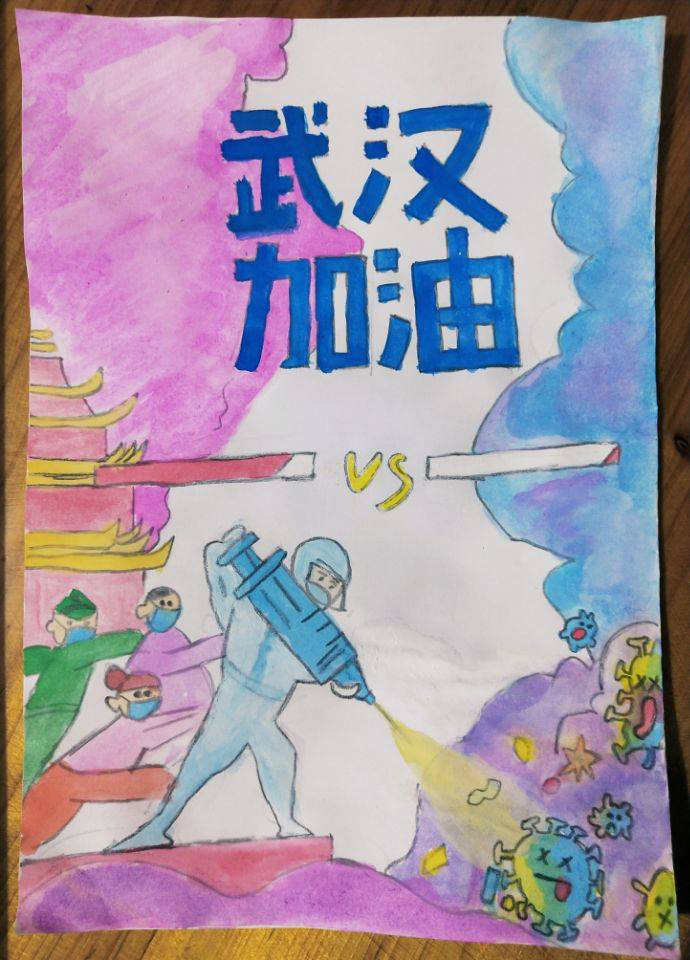 武汉
加油
VS